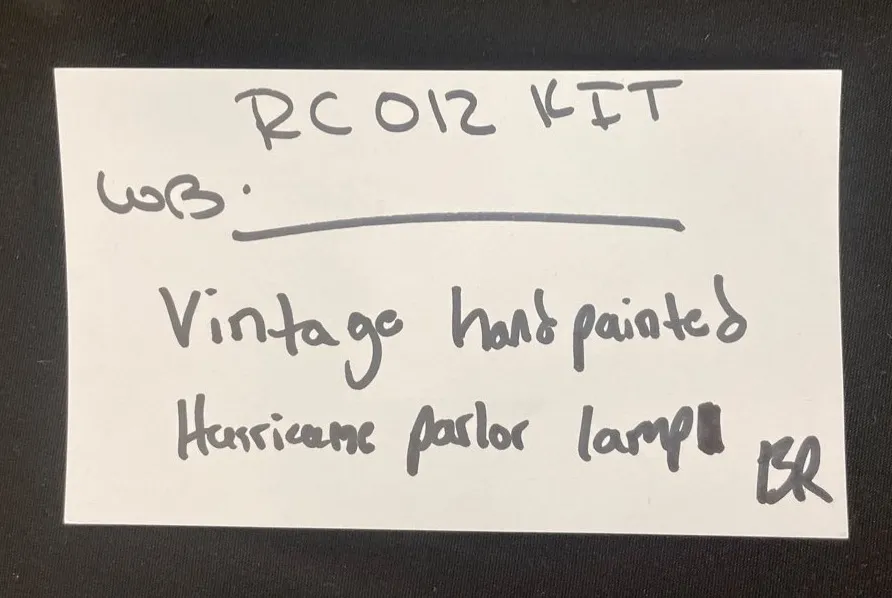 RC 012 KIT
WB.
Vintage hand painted
Hurricane parlor lamp
BR